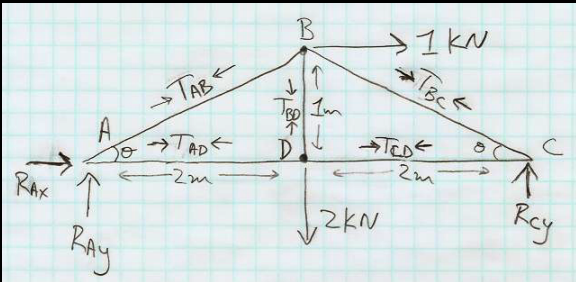 B
1 kN
→ T_AB ←
→ T_BC ←
T_BD
1m
A
θ
→ T_AD ←
D
→ T_CD ←
θ
C
R_Ax
2m
2m
R_Ay
2 kN
R_Cy